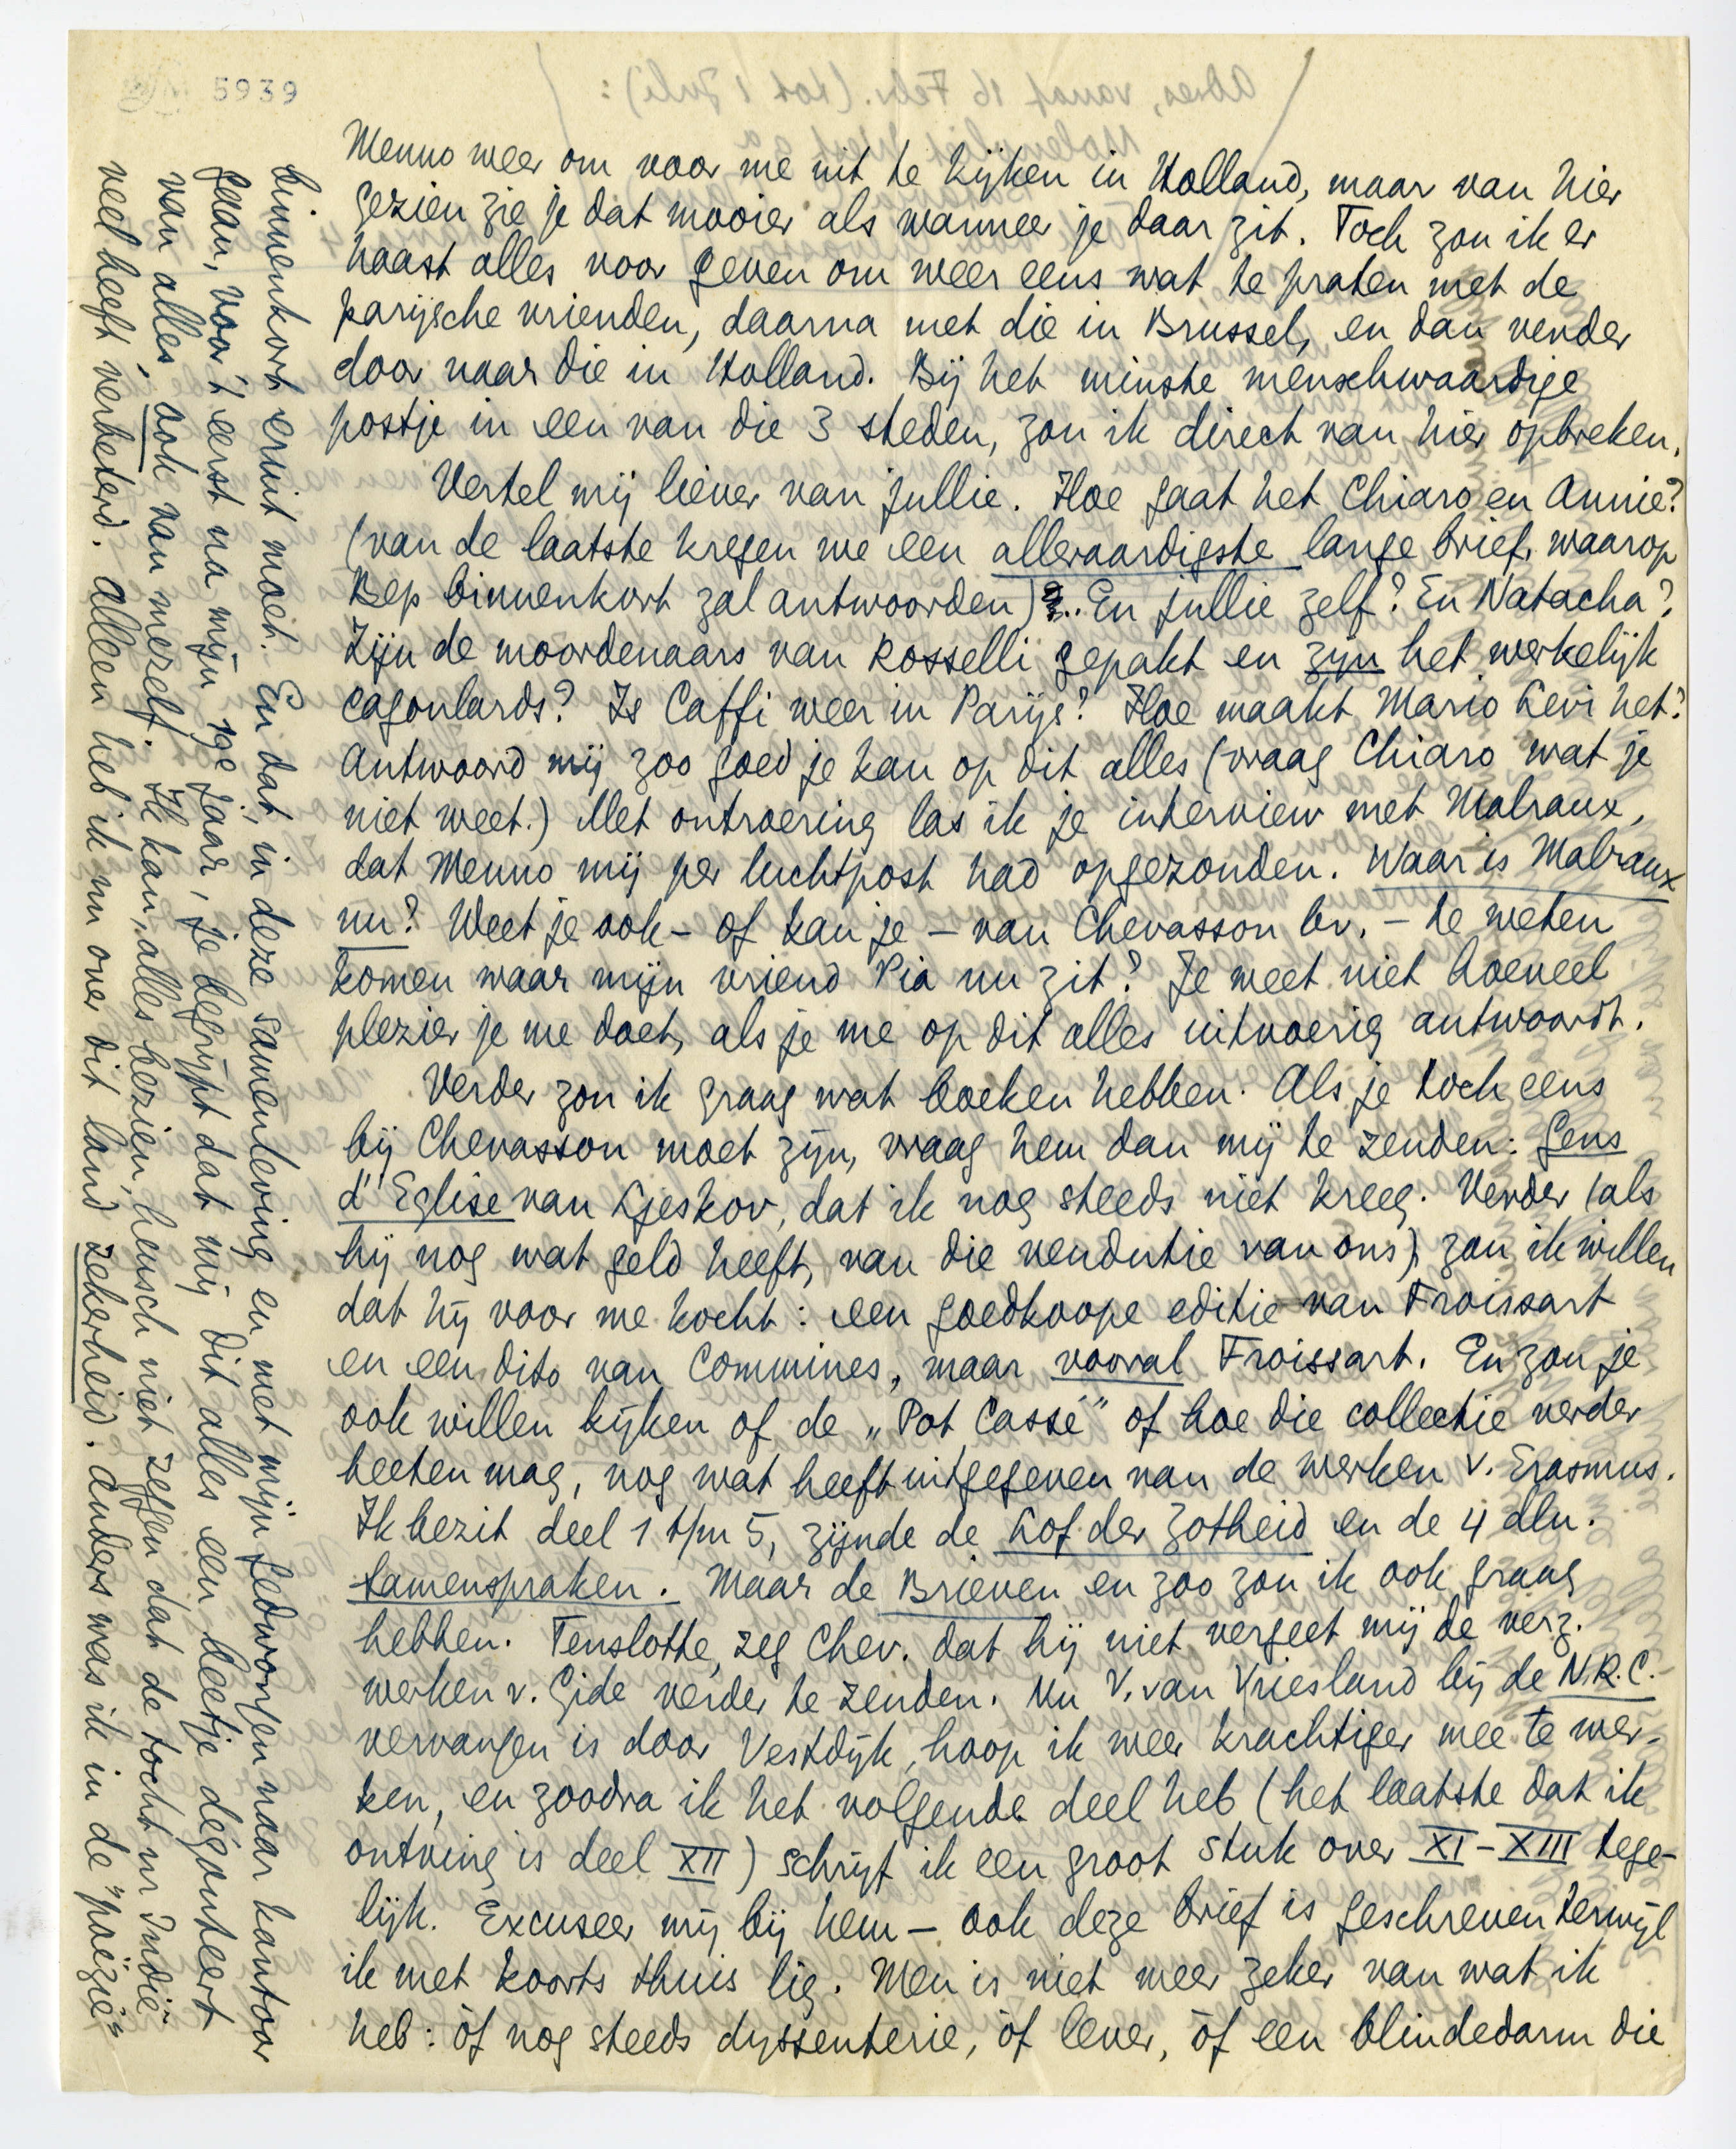 5939
Menno weer om voor me uit te kijken in Holland, maar van hier
gezien zie je dat mooier als wanneer je daar zit. Toch zou ik er
haast alles voor geven om weer eens wat te praten met de
parijsche vrienden, daarna met die in Brussel, en dan verder
door naar die in Holland. Bij het minste menschwaardige
postje in een van die 3 steden, zou ik direct van hier opbreken.
Vertel mij liever van jullie. Hoe gaat het Chiaro en Annie?
(van de laatste kregen we een alleraardigste lange brief, waarop
Bep binnenkort zal antwoorden). En jullie zelf? En Natacha?
Zijn de moordenaars van Rosselli gepakt en zijn het werkelijk
cagoulards? Is Caffi weer in Parijs? Hoe maakt Mario Levi het?
Antwoord mij zoo goed je kan op dit alles (vraag Chiaro wat je
niet weet.) Met ontroering las ik je interview met Malraux,
dat Menno mij per luchtpost had opgezonden. Waar is Malraux
nu? Weet je ook – of kan je – van Chevasson bv. – te weten
komen waar mijn vriend Pia nu zit? Je weet niet hoeveel
plezier je me doet, als je me op dit alles uitvoerig antwoordt.
Verder zou ik graag wat boeken hebben. Als je toch eens
bij Chevasson moet zijn, vraag hem dan mij te zenden: Gens
d'Eglise van Ljeskov, dat ik nog steeds niet kreeg. Verder (als
hij nog wat geld heeft, van die vendutie van ons) zou ik willen
dat hij voor me kocht: een goedkoope editie van Froissart
en een dito van Commines, maar vooral Froissart. En zou je
ook willen kijken of de „Pot Cassé" of hoe die collectie verder
heeten mag, nog wat heeft uitgegeven van de werken v. Erasmus.
Ik bezit deel 1 t/m 5, zijnde de Lof der Zotheid en de 4 dln.
Samenspraken. Maar de Brieven en zoo zou ik ook graag
hebben. Tenslotte, zeg Chev. dat hij niet vergeet mij de verz.
werken v. Gide verder te zenden. Nu V. van Vriesland bij de N.R.C.
vervangen is door Vestdijk, hoop ik weer krachtiger mee te wer-
ken, en zoodra ik het volgende deel heb (het laatste dat ik
ontving is deel XII) schrijf ik een groot stuk over XI–XIII tege-
lijk. Excuseer mij bij hem – ook deze brief is geschreven terwijl
ik met koorts thuis lig. Men is niet meer zeker van wat ik
heb: òf nog steeds dyssenterie, òf lever, òf een blindedarm die
binnenkort eruit moet. En dat, in deze samenleving en met mijn gedwongen naar kantoor
gaan, voor 't eerst na mijn 19e jaar, je begrijpt dat mij dit alles een beetje degouteert
van alles, ook van mezelf. Ik kan, alles bezien, heusch niet zeggen dat de tocht nr Indië
veel heeft verbeterd. Alleen heb ik nu over dit land zekerheid. Anders was ik in de „poëzie"